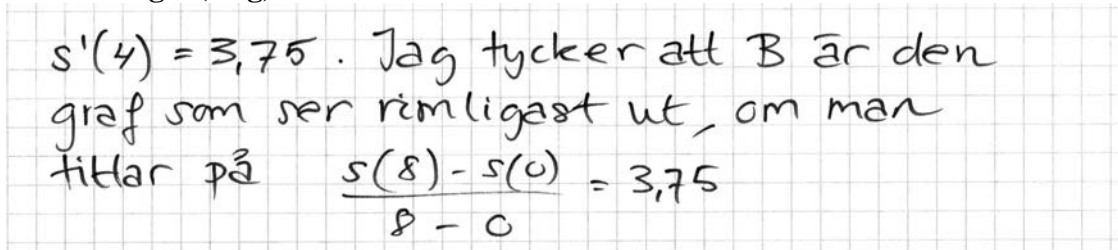 s'(4) = 3,75. Jag tycker att B är den
graf som ser rimligast ut, om man
tittar på s(8) - s(0) / 8 - 0 = 3,75